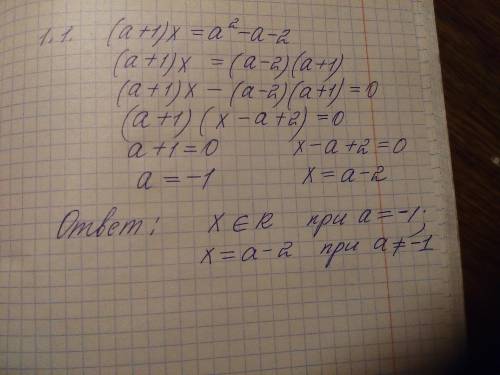 1.1. (a+1)x = a² - a - 2
(a+1)x = (a-2)(a+1)
(a+1)x - (a-2)(a+1) = 0
(a+1)(x - a + 2) = 0
a+1=0 x-a+2=0
a = -1 x = a-2
Ответ: x ∈ R при a = -1;
x = a - 2 при a ≠ -1